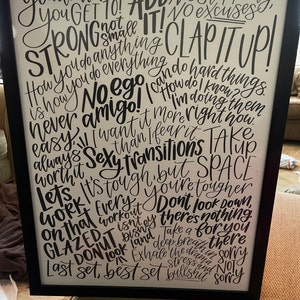 you GET to! ADD IT!
No excuses,
STRONG not small
CLAP IT UP!
How you do anything
is how you do everything.
I can do hard things.
How do I know?
I'm doing them
right now.
No ego
amigo!
never
easy,
always
worth it
I want it more
than I fear it
TAKE
UP
SPACE
Sexy transitions
It's tough, but
you're tougher
Let's
work
on that
GLAZED
DONUT
look
Every
workout
isn't
Dont look down,
there's nothing
for you
there
Take a
deep breath
Exhale the
stress and
bullshit
Sorry
Not
sorry
Last set, best set